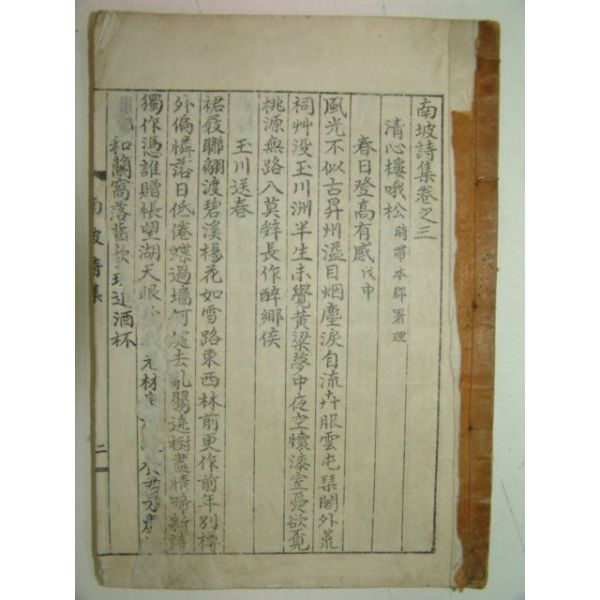 南坡詩集卷之三
清心樓哦松 時帶本郡署理
春日登高有感 戊申
風光不似古昇州溢目烟塵淚自流卉服雲屯琹閣外荒
祠艸没玉川洲半生未覺黃粱夢中夜空懷漆室憂欲覓
桃源無路入莫辭長作醉鄉侯
玉川送春
裙屐聯翩渡碧溪楊花如雪路東西林前更作前年別樽
外偏憐落日低倦蝶過墻何處去亂鶯遶樹盡情啼新詩
獨作憑誰贈悵望湖天眼
和蘭窩落齒 酒杯
南坡詩集
二